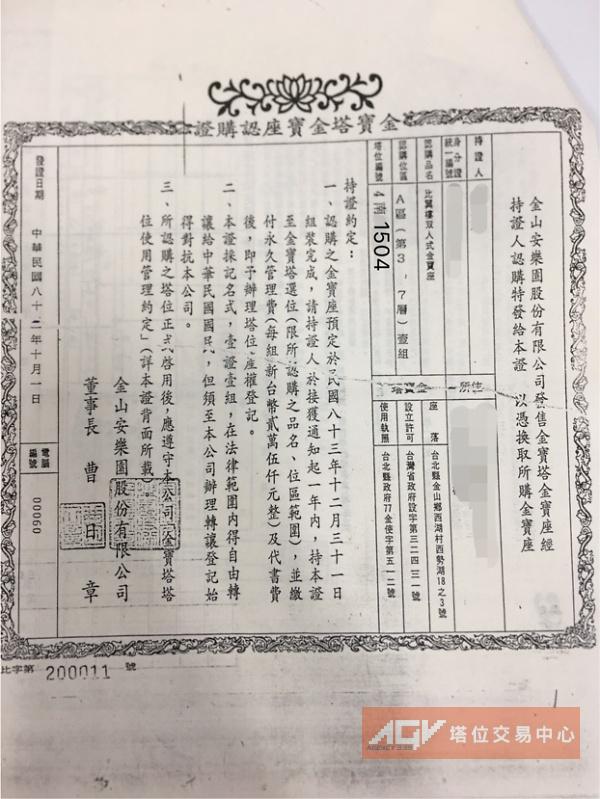 金寶塔金寶座認購證
金山安樂園股份有限公司發售金寶塔金寶座經
持證人認購特發給本證　以憑換取所購金寶座
持證人
身分證統一編號
認購品名
比翼樓双人式金寶座
認購位區
A區(第3、7層)壹組
塔位編號
4南1504
住所
金寶塔
座落
台北縣金山鄉西湖村西勢湖18之3號
設立許可
台灣省政府設字第三二四三一號
使用執照
台北縣政府77金使字第五一二號
持證約定：
一、認購之金寶座預定於民國八十三年十二月三十一日
組裝完成，請持證人於接獲通知起一年內，持本證
至金寶塔選位(限所認購之品名、位區範圍)，並繳
付永久管理費(每組新台幣貳萬伍仟元整)及代書費
後，即予辦理塔位座權登記。
二、本證採記名式，壹證壹組，在法律範圍內得自由轉
讓給中華民國國民，但須至本公司辦理轉讓登記始
得對抗本公司。
三、所認購之塔位正式啓用後，應遵守本公司「金寶塔塔
位使用管理約定」(詳本證背面所載)
金山安樂園股份有限公司
董事長　曹日章
發證日期　中華民國八十二年十月一日
電腦編號
00060
比字第 200011 號
AGV 塔位交易中心